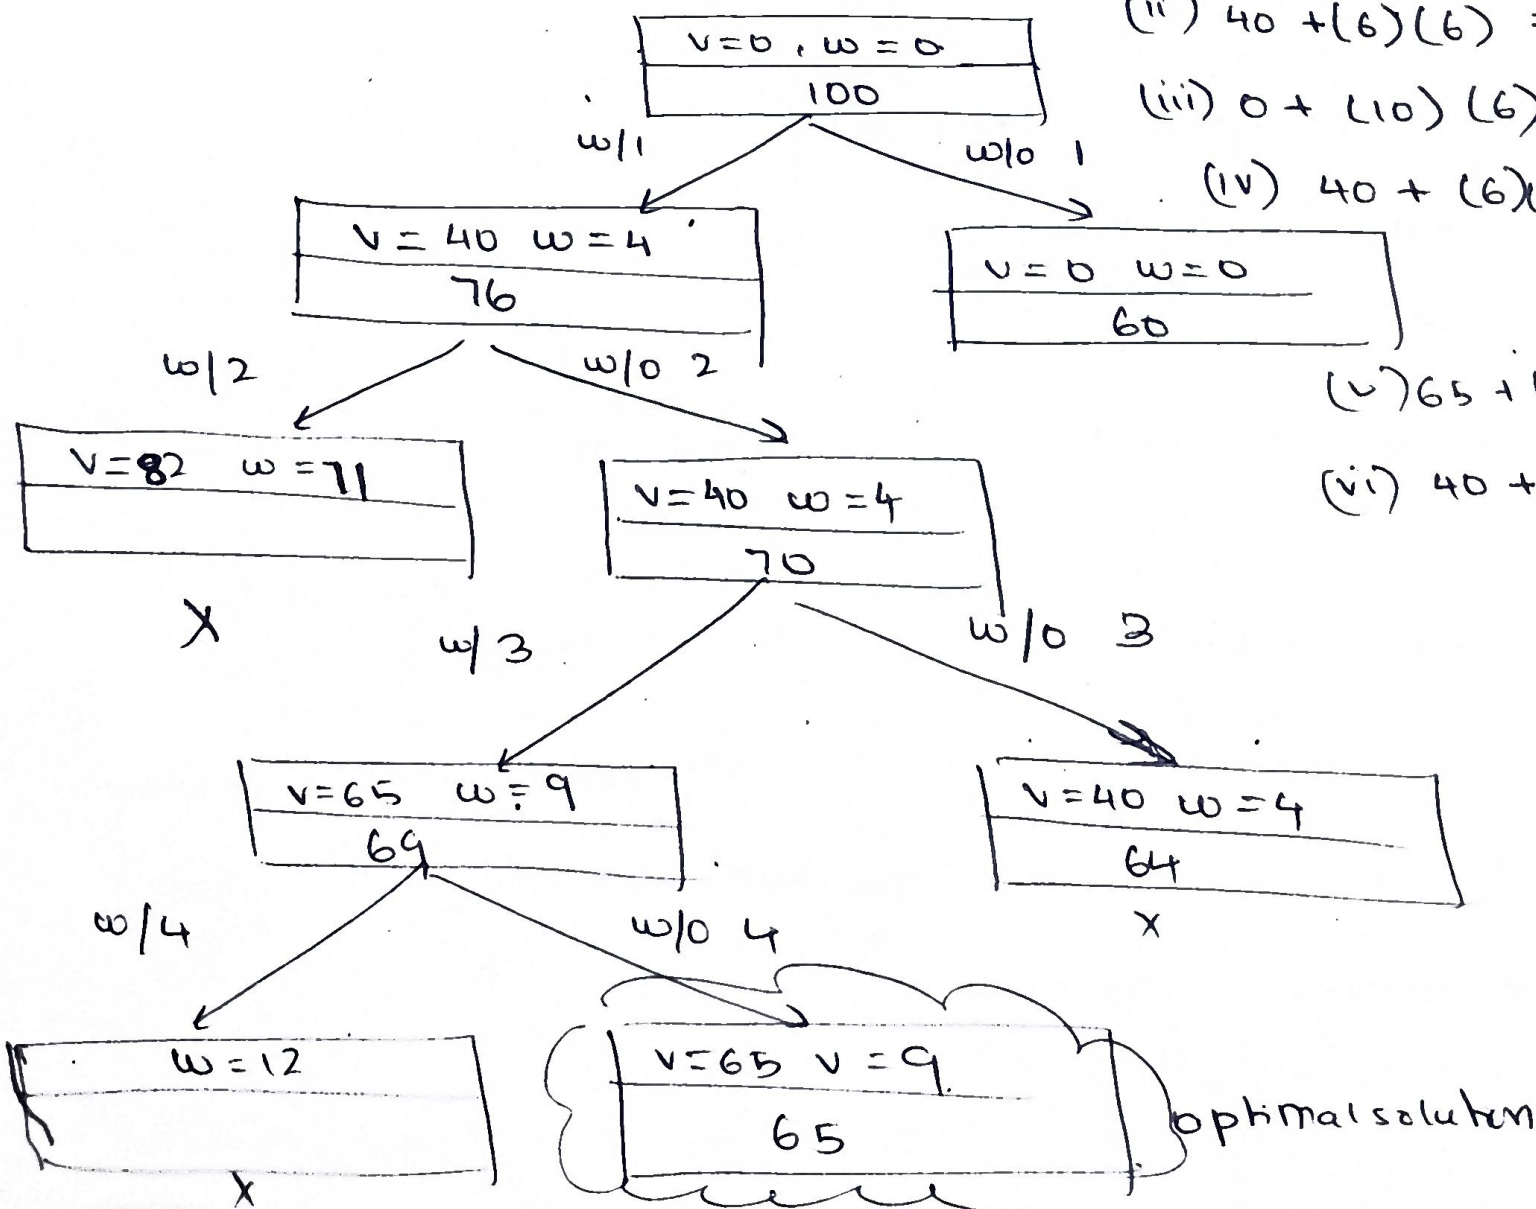 v=0, w=0
100
(ii) 40 +(6)(6) =
(iii) 0 + (10) (6)
(iv) 40 + (6)(
w/1
w/o 1
v=40 w=4
76
v=0 w=0
60
w/2
w/o 2
(v) 65 +
(vi) 40 +
v=82 w=11
v=40 w=4
70
X
w/3
w/o 3
v=65 w=9
69
v=40 w=4
64
X
w/4
w/o 4
w=12
X
v=65 v=9
65
optimal solution